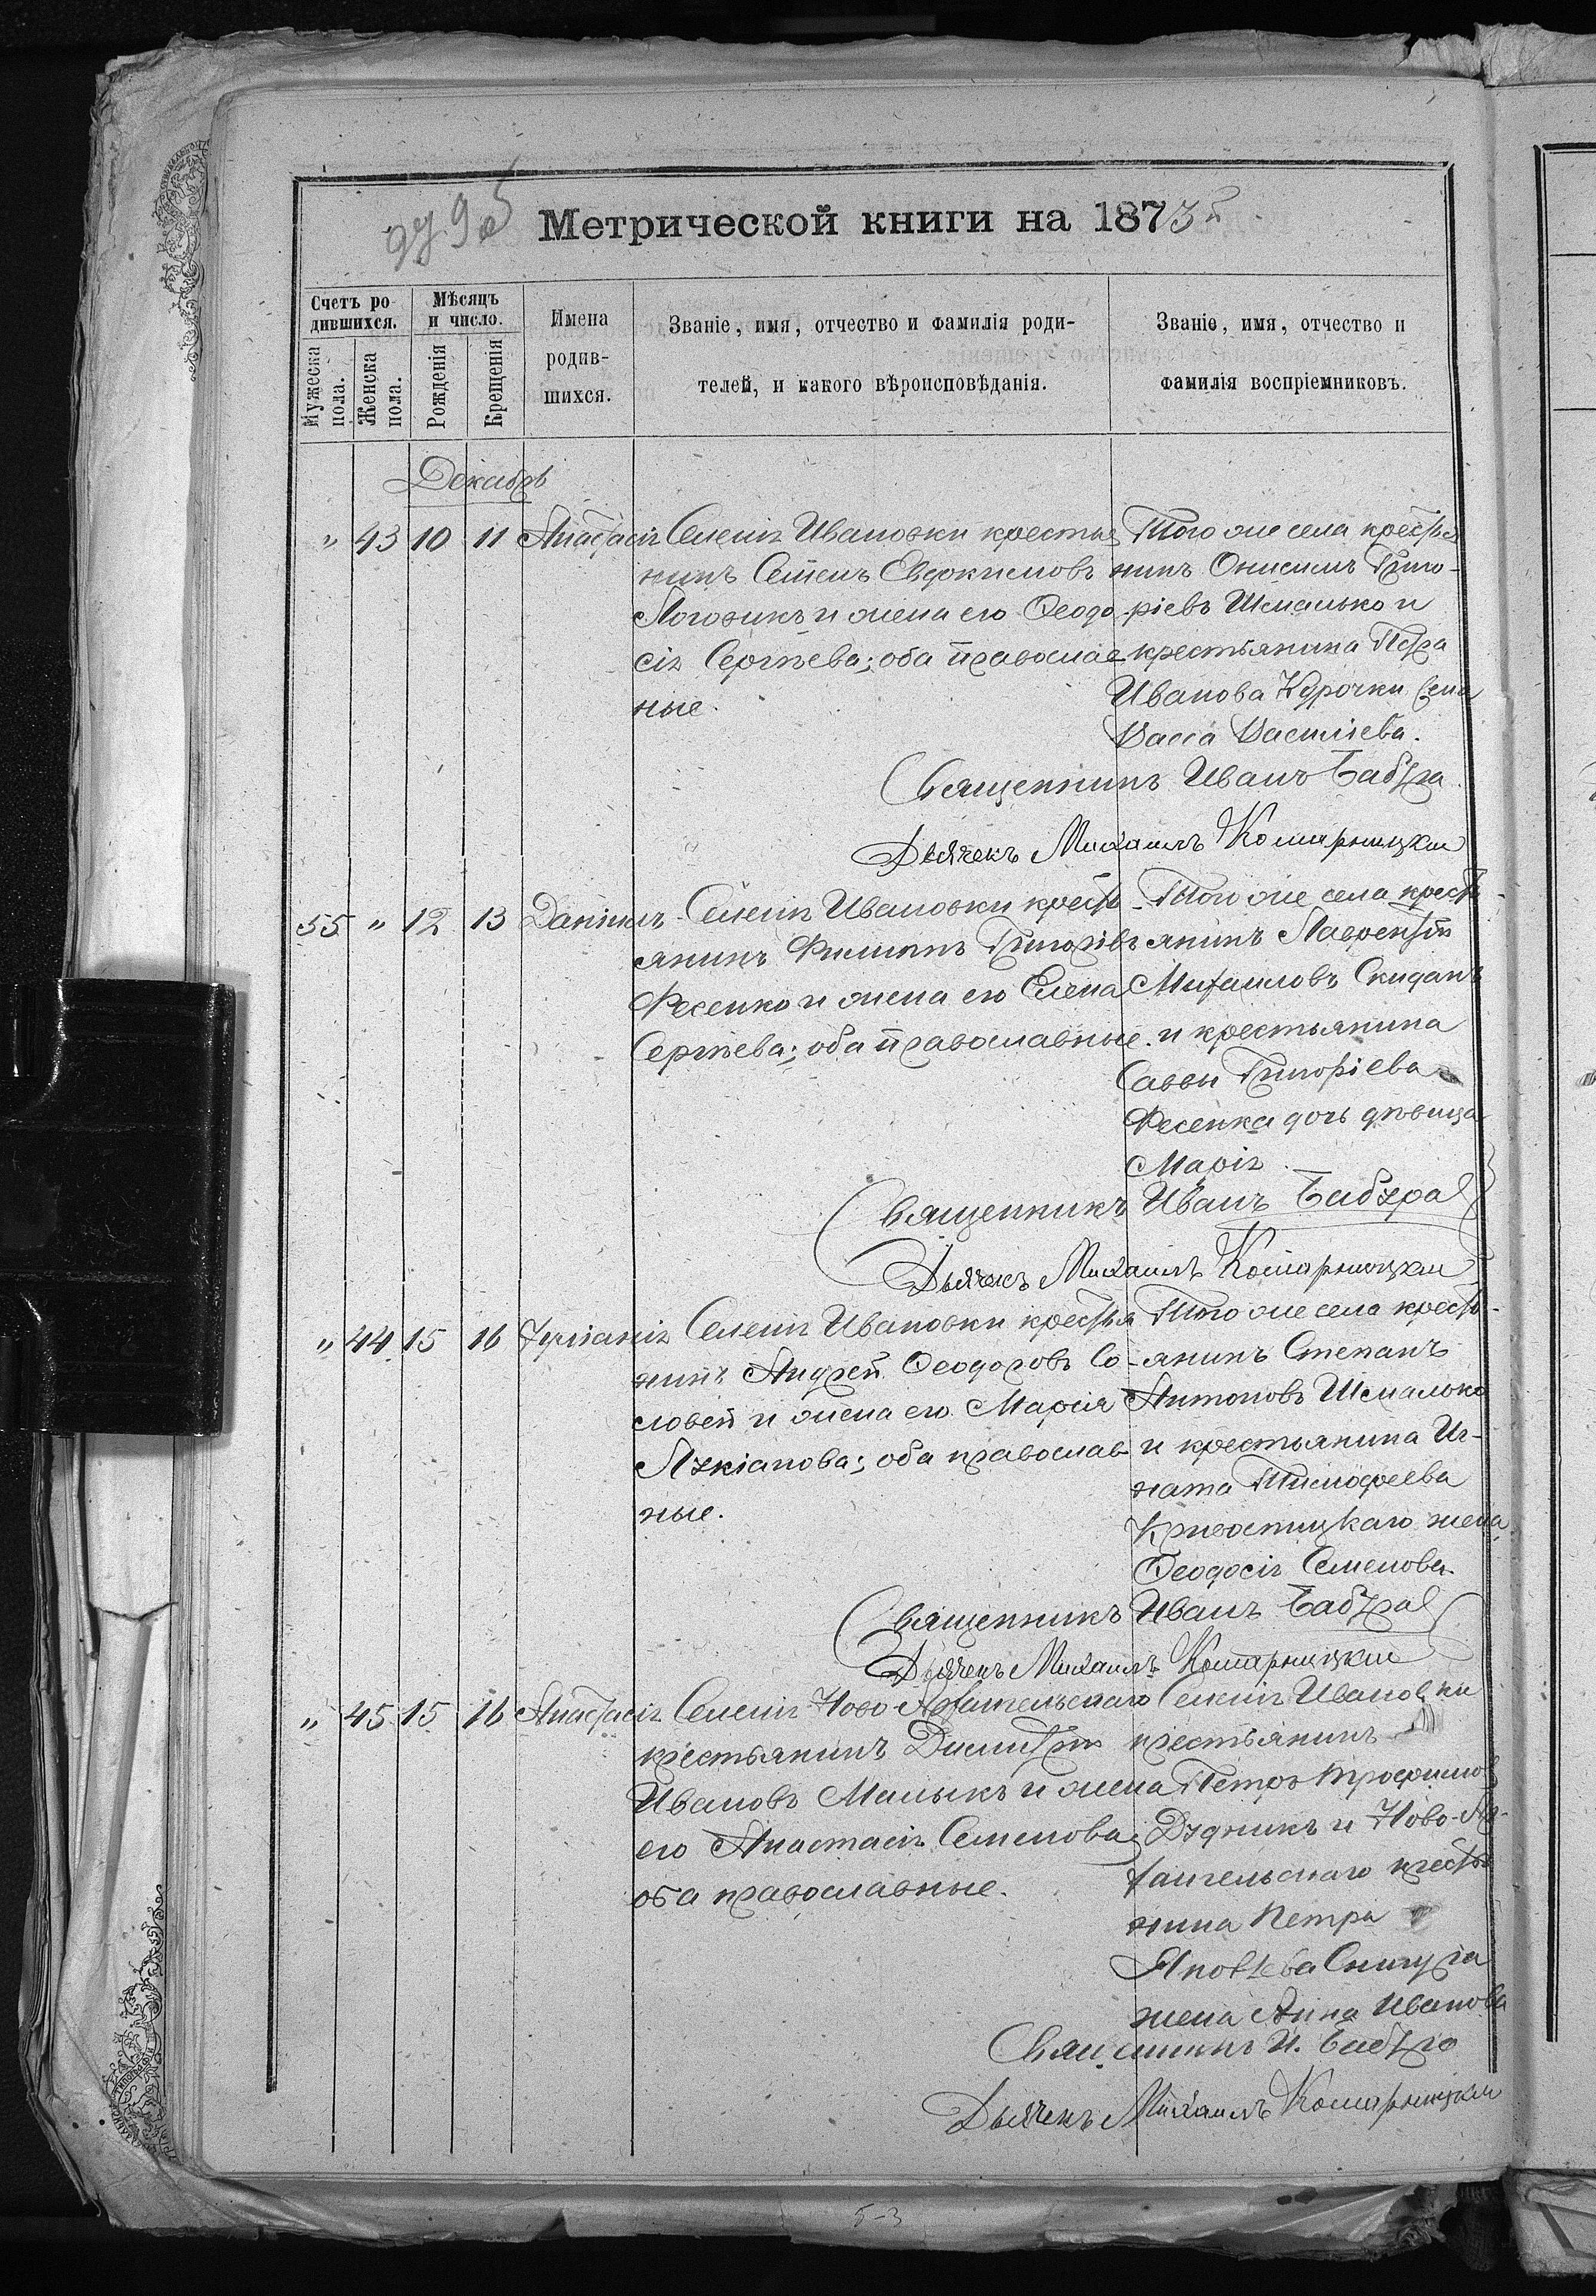 Метрической книги на 1873 г.
Счетъ ро-
дившихся.
Мужеска пола.
Женска пола.
Мѣсяцъ
и число.
Рожденія
Крещенія
Имена
родив-
шихся.
Званіе, имя, отчество и фамилія роди-
телей, и какого вѣроисповѣданія.
Званіе, имя, отчество и
фамилія воспріемниковъ.
Декабрь
" 43 10 11 Анастасія
Селенія Ивановки крестья
нинъ Семенъ Евдокимовъ
и жена его Феодо
сія Сергѣева; оба православ
ные.
Того же села крестья
нинъ Онисимъ Григо-
ріевъ Шмалько и
крестьянина Петра
Иванова Курочки жена
Васса Василіева.
Священникъ Иванъ Бабура
Дьячекъ Михаилъ Комарницкий
55 " 12 13 Даніилъ
Селенія Ивановки кресть-
янинъ Филиппъ Григоріевъ
Фесенко и жена его Елена
Сергѣева; оба православные.
Того же села кресть-
янинъ Лаврентій
Михаиловъ Скиданъ
и крестьянина
Саввы Григоріева
Фесенка дочь дѣвица
Марія.
Священникъ Иванъ Бабура
Дьячекъ Михаилъ Комарницкий
" 44 15 16 Іуліанія
Селенія Ивановки крестья
нинъ Андрей Феодоровъ Со-
ловей и жена его Марія
Лукіанова; оба православ
ные.
Того же села кресть-
янинъ Степанъ
Антоновъ Шмалько
и крестьянина Иг-
ната Тимофеева
жена
Феодосія Семенова.
Священникъ Иванъ Бабура
Дьячекъ Михаилъ Комарницкий
" 45 15 16 Анастасія
Селенія Ново-Архангельскаго
крестьянинъ Димитрій
Ивановъ Малыкъ и жена
его Анастасія Семенова;
оба православные.
Селенія Ивановки
крестьянинъ
Петръ Трофимовъ
Дудникъ и Ново-Ар-
хангельскаго крестья
нина Петра
Яковлева
жена Анна Иванова
Священникъ И. Бабура
Дьячекъ Михаилъ Комарницкий
5-3